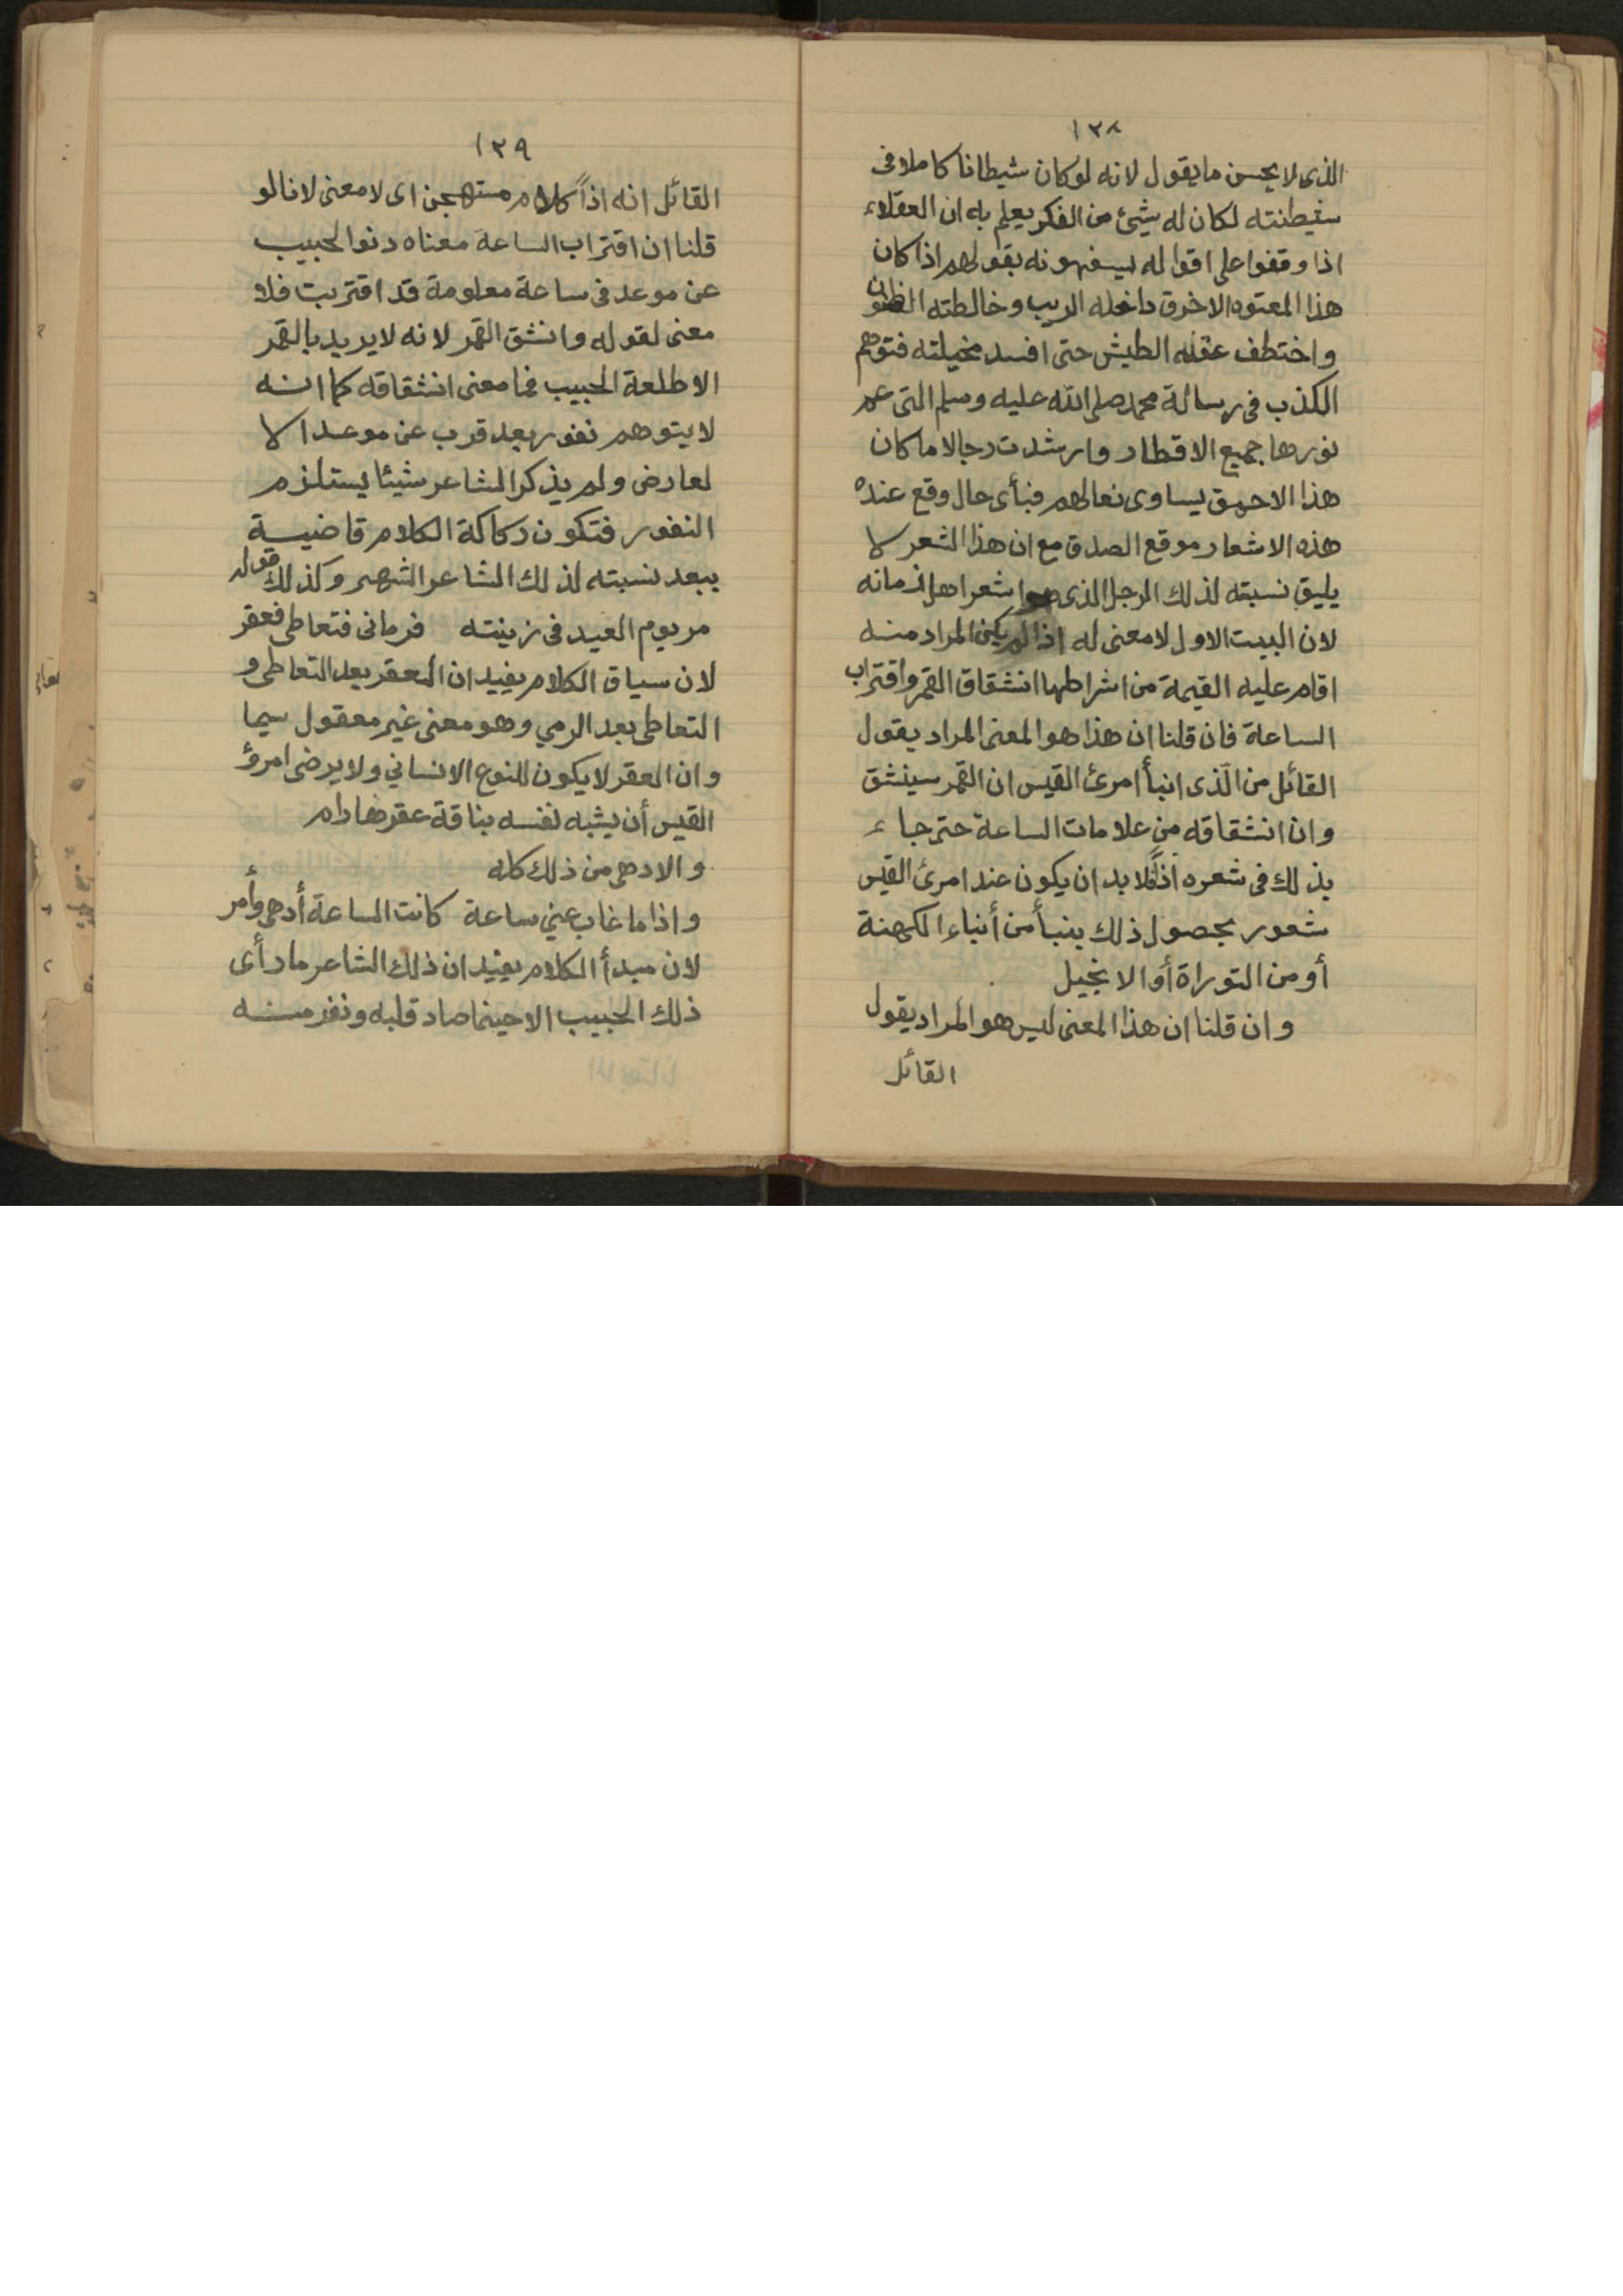 ١٣٨
الذى لا يحسن ما يقول لانه لو كان شيطانا كاملا فى
شيطنته لكان له شيئ من الفكر يعلم به ان العقلاء
اذا وقفوا على اقواله يسفهونه بقولهم اذا كان
هذا المعتوه الاخرق داخله الريب وخالطته الظنون
واختطف عقله الطيش حتى افسد مخيلته فتوهم
الكذب فى رسالة محمد صلى الله عليه وسلم التى عم
نورها جميع الاقطار وارشدت رجالا ما كان
هذا الاحمق يساوى نعالهم فبأى حال وقع عنده
هذه الاشعار موقع الصدق مع ان هذا الشعر لا
يليق نسبته لذلك الرجل الذى هو اشعر اهل زمانه
لان البيت الاول لا معنى له اذا لم يكن المراد منه
اقام عليه القيمة من اشراطها انشقاق القمر واقتراب
الساعة فان قلنا ان هذا هو المعنى المراد يقول
القائل من الذى انبأ امرئ القيس ان القمر سينشق
وان انشقاقه من علامات الساعة حتى جاء
بذلك فى شعره اذاً فلا بد ان يكون عند امرئ القيس
شعور بحصول ذلك بنبأ من أنباء الكهنة
أو من التوراة أو الانجيل
وان قلنا ان هذا المعنى ليس هو المراد يقول
القائل
١٣٩
القائل انه اذاً كلام مستهجن اى لا معنى لانا لو
قلنا ان اقتراب الساعة معناه دنو الحبيب
عن موعد فى ساعة معلومة قد اقتربت فلا
معنى لقوله وانشق القمر لانه لا يريد بالقمر
الا طلعة الحبيب فما معنى انشقاقه كما انه
لا يتوهم نفور بعد قرب عن موعد الا
لعارض ولم يذكر الشاعر شيئا يستلزم
النفور فتكون ركاكة الكلام قاضية
ببعد نسبته لذلك الشاعر الشهير وكذلك قوله
مر يوم العيد فى زينته فرمانى فتعاطى فعقر
لان سياق الكلام يفيد ان العقر بعد التعاطى و
التعاطى بعد الرمي وهو معنى غير معقول سيما
وان العقر لا يكون للنوع الانساني ولا يرضى امرؤ
القيس أن يشبه نفسه بناقة عقرها رام
والادهى من ذلك كله
واذا ما غاب عني ساعة كانت الساعة أدهى وأمر
لان مبدأ الكلام يفيد ان ذلك الشاعر ما رأى
ذلك الحبيب الا حينما صاد قلبه ونفر منه